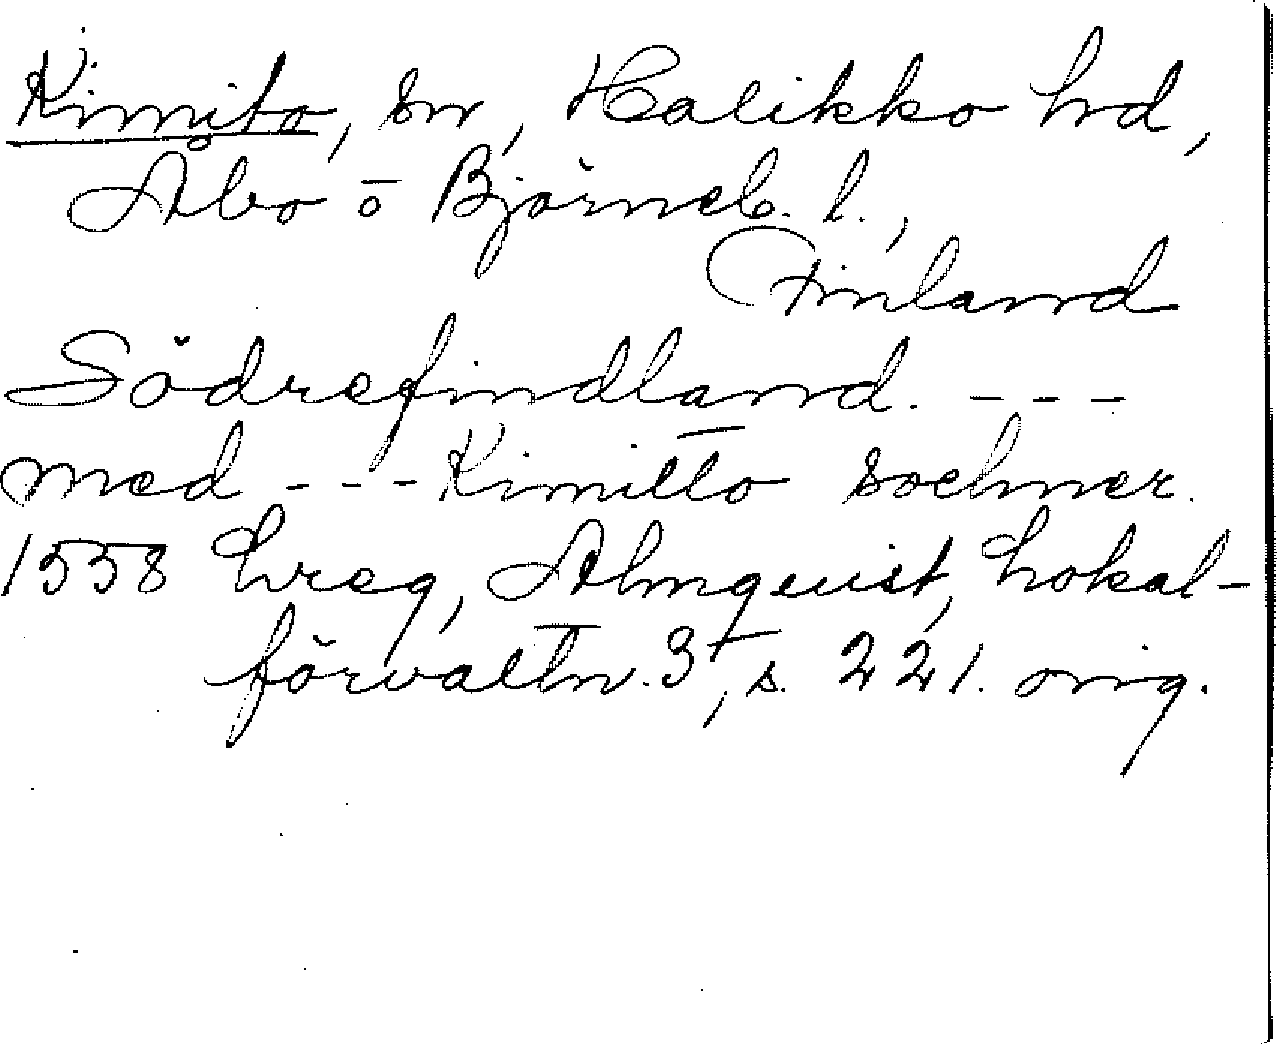 Kimito, sn, Halikko hd,
Åbo o Björneb. l.,
Finland
Södrefindland. ---
med --- Kimitto sochner.
1558 Lreg, Almquist, Lokal-
förvaltn. 3, s. 221. orig.